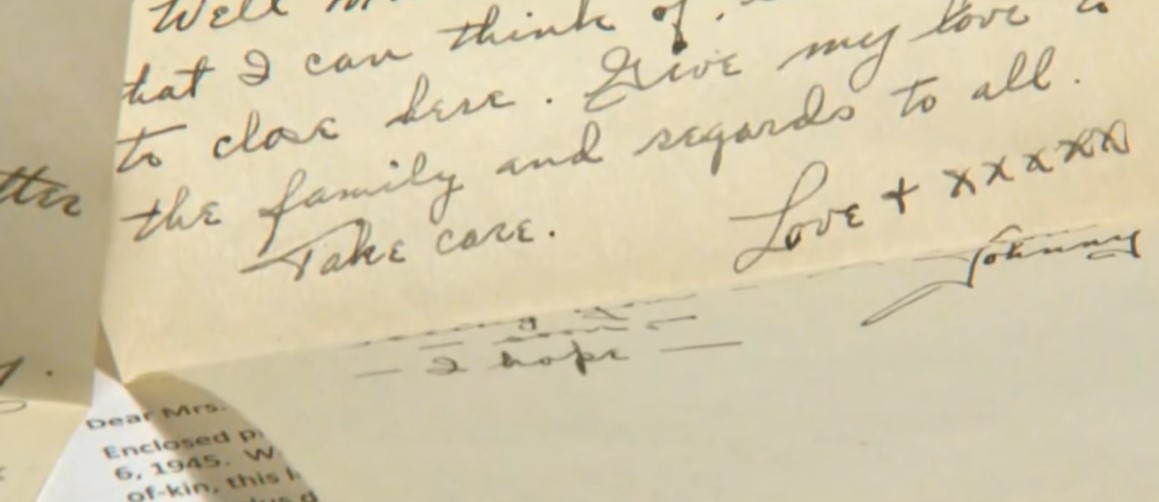 Well
that I can think of,
to close here. Give my love to
the family and regards to all.
Take care.
Love + xxxxxx
Johnny
— I hope —
tter
Dear Mrs.
Enclosed p
6, 1945. W
of-kin, this l